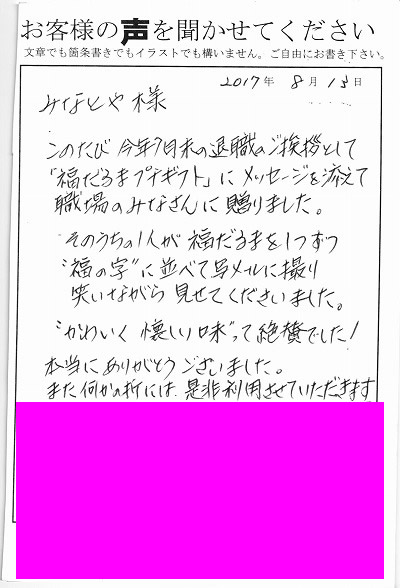 お客様の声を聞かせてください
文章でも箇条書きでもイラストでも構いません。ご自由にお書き下さい。
2017年 8月 13日
みなとや 様
このたび 今年7月末の退職のご挨拶として
「福だるまプチギフト」に メッセージを添えて
職場のみなさんに 贈りました。
そのうちの1人が 福だるまを1つずつ
"福の字"に並べて写メールに撮り
笑いながら 見せてくださいました。
"かわいく 懐しい味"って 絶賛でした!
本当に ありがとうございました。
また何かの折には、是非利用させていただきます